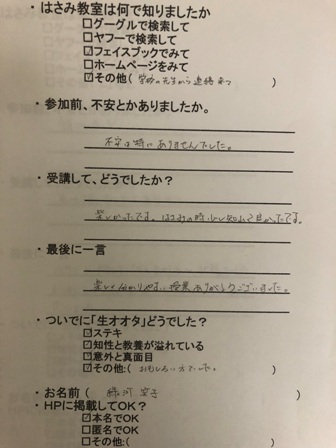 ・はさみ教室は何で知りましたか
□グーグルで検索して
□ヤフーで検索して
☑フェイスブックでみて
□ホームページをみて
☑その他( 学校の先生から連絡来て )
・参加前、不安とかありましたか。
不安は特にありませんでした。
・受講して、どうでしたか?
楽しかったです。はさみの時、少し知れて良かったです。
・最後に一言
楽しく分かりやすい授業ありがとうございました。
・ついでに「生オオタ」どうでした?
☑ステキ
☑知性と教養が溢れている
☑意外と真面目
☑その他:( おもしろい方でした。 )
・お名前( )
・HPに掲載してOK?
☑本名でOK
□匿名でOK
□その他:( )